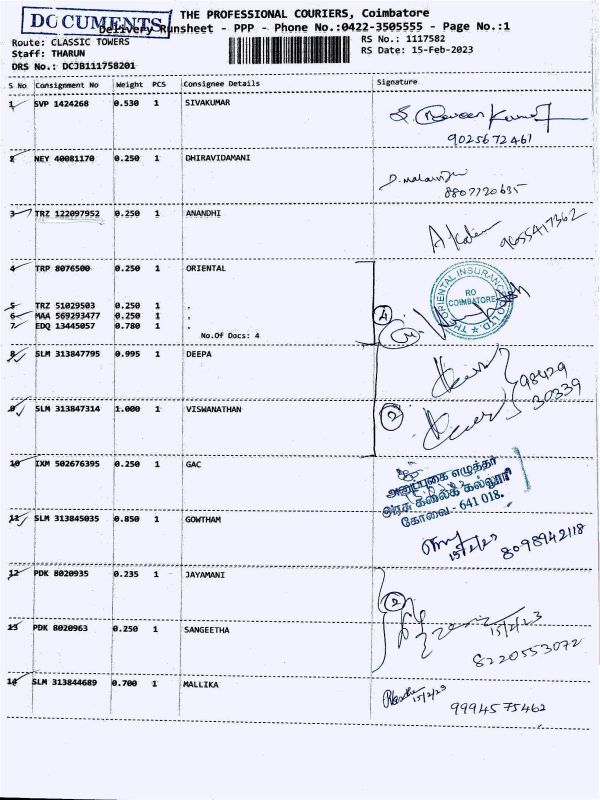 DOCUMENTS
THE PROFESSIONAL COURIERS, Coimbatore
Delivery Runsheet - PPP - Phone No.:0422-3505555 - Page No.:1
Route: CLASSIC TOWERS
Staff: THARUN
DRS No.: DCJB111758201
RS No.: 1117582
RS Date: 15-Feb-2023
S No Consignment No Weight PCS Consignee Details Signature
1 SVP 1424268 0.530 1 SIVAKUMAR
9025672461
2 NEY 40081170 0.250 1 DHIRAVIDAMANI
8807720635
3 TRZ 122097952 0.250 1 ANANDHI
9655417362
4 TRP 8076500 0.250 1 ORIENTAL
5 TRZ 51029503 0.250 1 .
6 MAA 569293477 0.250 1 .
7 EDQ 13445057 0.780 1 .
No.Of Docs: 4
4
THE ORIENTAL INSURANCE CO LTD
RO
COIMBATORE
8 SLM 313847795 0.995 1 DEEPA
98429
30339
9 SLM 313847314 1.000 1 VISWANATHAN
2
10 IXM 502676395 0.250 1 GAC
அரசு கலைக் கல்லூரி
கோவை - 641 018.
11 SLM 313845035 0.850 1 GOWTHAM
15/2/23 8098942118
12 PDK 8020935 0.235 1 JAYAMANI
2
13 PDK 8020963 0.250 1 SANGEETHA
15/2/23
8220553072
14 SLM 313844689 0.700 1 MALLIKA
15/2/23
9994575462